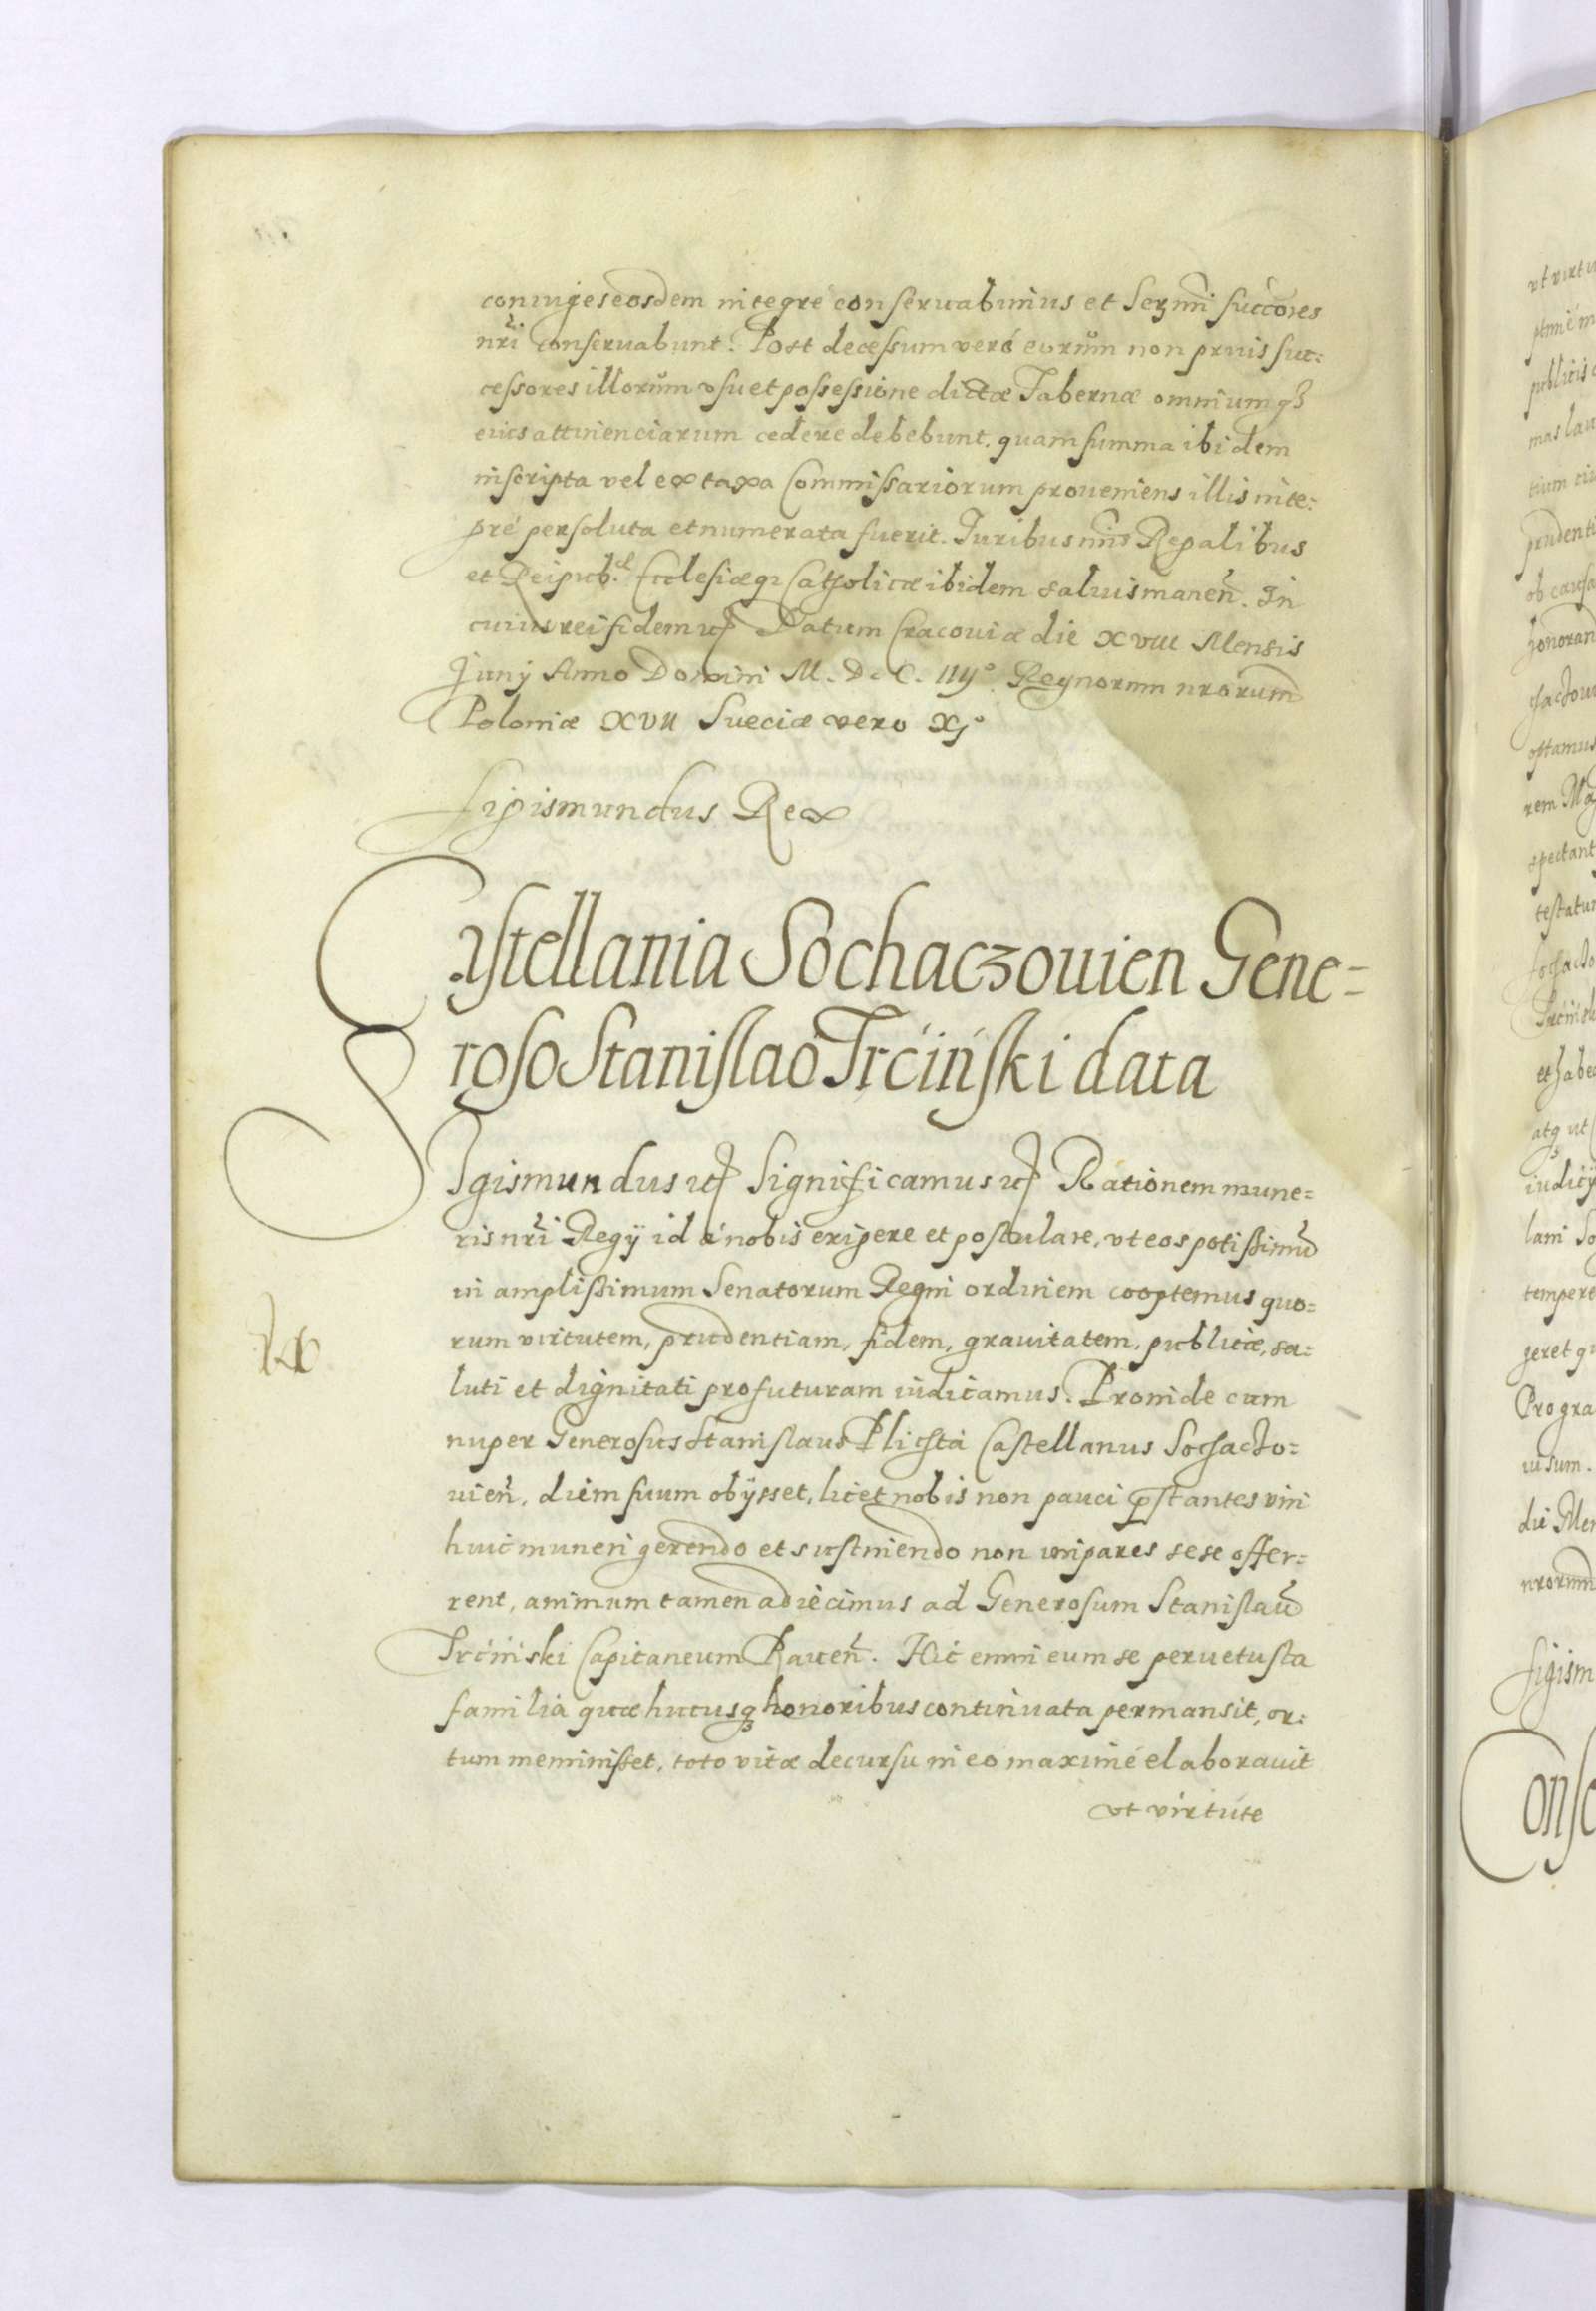 coniuges eosdem integré conseruabimus et Serm̃i succ̃ores
nr̃i conseruabunt. Post decessum veró eorũm non prius suc=
cessores illorũm vsu et possessione dictæ Tabernæ omniumqꝫ
eius attinenciarum cedere debebunt. quam summa ibidem
inscripta vel ex taxa Commissariorum proueniens illis inte=
gré persoluta et numerata fuerit. Iuribus nr̃is Regalibus
et Reipub. Ecclesiæqꝫ Catholicæ ibidem saluis maneñ. In
cuius rei fidem ꝛcꝭ Datum Cracouiæ die XVIII Mensis
Juny Anno Domini M. D. C. IIIJ° Regnorum nrorum̃
Poloniæ XVII Sueciæ vero XJ°
Sigismundus Rex
Castellania Sochaczouien Gene=
roso Stanislao Trćiński data
SIgismundus ꝛcꝭ Significamus ꝛcꝭ Rationem mune=
ris nr̃i Regÿ id á nobis exigere et postulare, vt eos potissimũ
in amplissimum Senatorum Regni ordinem cooptemus quo=
rum virtutem, prudentiam, fidem, grauitatem, publicæ, sa=
luti et dignitati profuturam iudicamus. Proinde cum
nuper Generosus Stanislaus Plichta Castellanus Sochaczo=
uieñ, diem suum obÿsset, licet nobis non pauci p̃stantes viri
huic muneri gerendo et sustinendo non impares sese offer=
rent, animum tamen adiecimus ad Generosum Stanislaũ
Trćiński Capitaneum Raueñ. Hic enim cum se peruetusta
familia quæ hucusqꝫ honoribus continuata permansit, or=
tum meminisset, toto vitæ decursu in eo maximé elaborauit
vt virtute